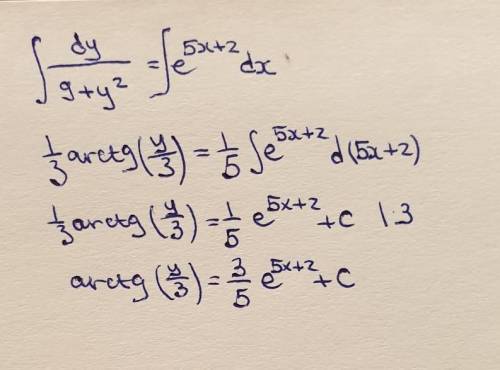 ∫ dy/(9+y²) = ∫ e^(5x+2) dx
1/3 arctg(y/3) = 1/5 ∫ e^(5x+2) d(5x+2)
1/3 arctg(y/3) = 1/5 e^(5x+2) + C |·3
arctg(y/3) = 3/5 e^(5x+2) + C